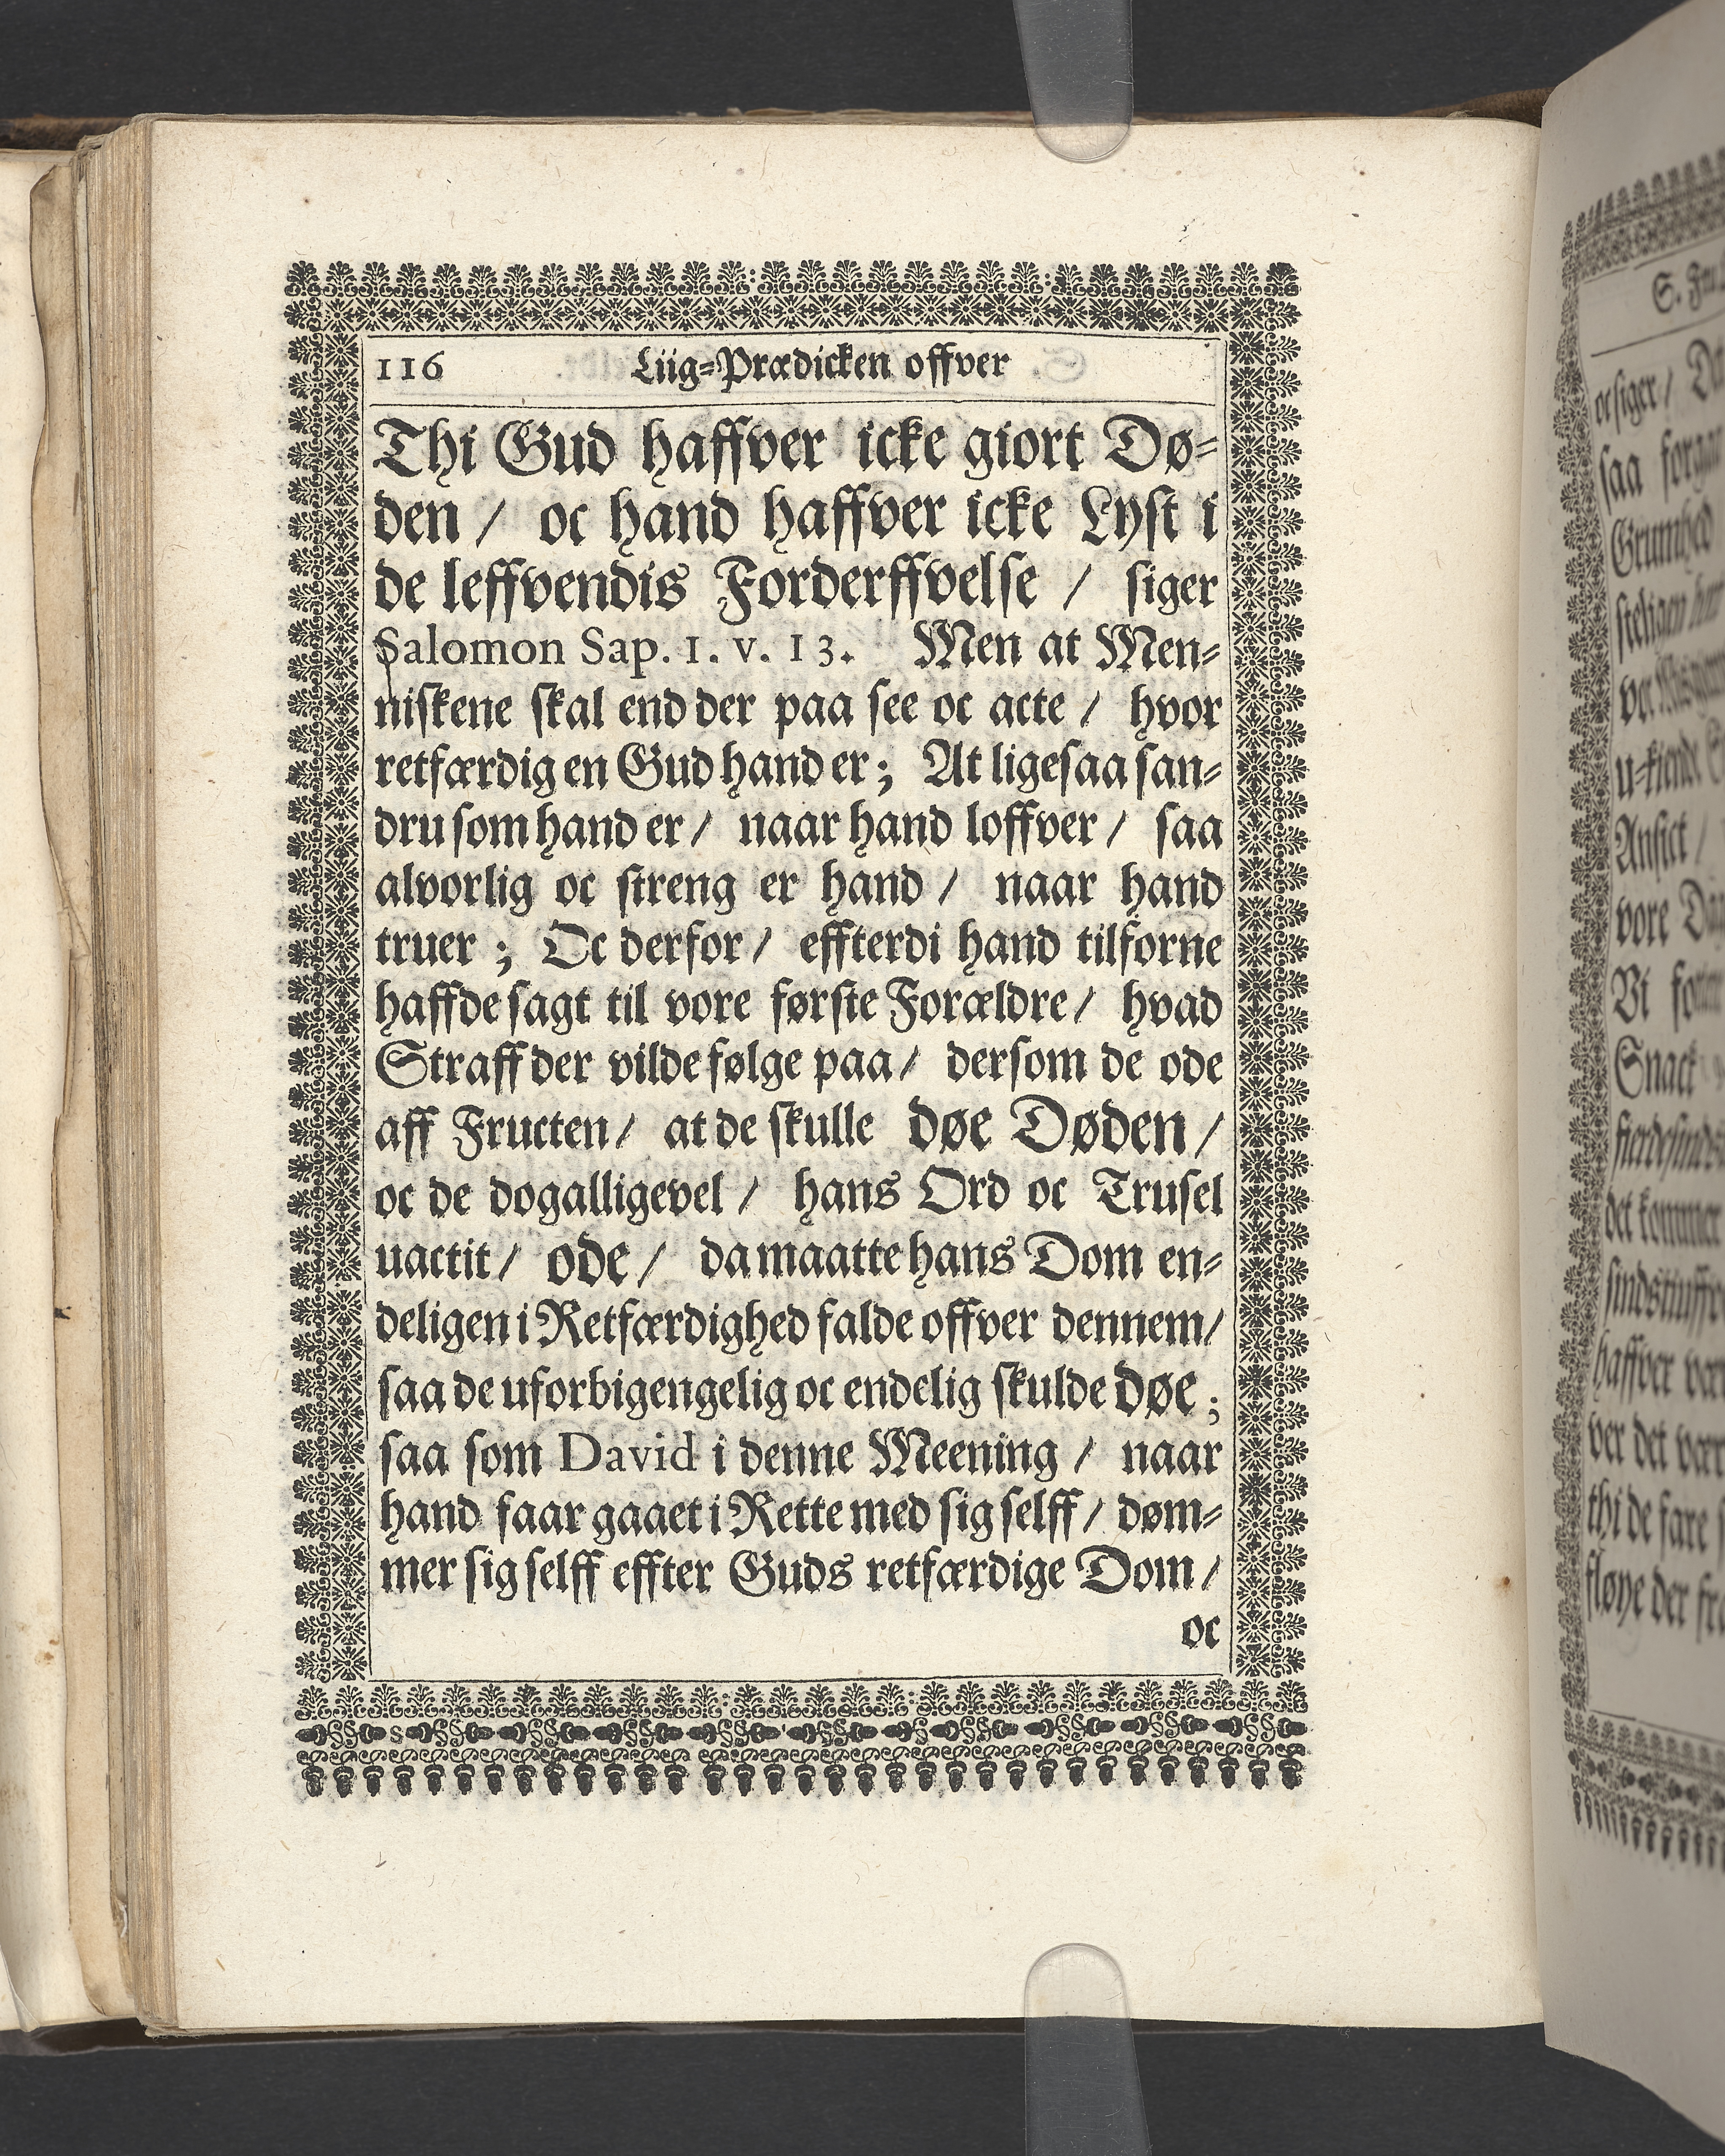 116 Liig-Prædicken offver
Thi Gud haffver icke giort Dø-
den / oc hand haffver icke Lyst i
de leffvendis Forderffvelse / siger
Salomon Sap. 1. v. 13. Men at Men-
niskene skal end der paa see oc acte / hvor
retfærdig en Gud hand er; At ligesaa san-
dru som hand er / naar hand loffver / saa
alvorlig oc streng er hand / naar hand
truer ; Oc derfor / effterdi hand tilforne
haffde sagt til vore første Forældre / hvad
Straff der vilde følge paa / dersom de ode
aff Fructen / at de skulle døe Døden /
oc de dogalligevel / hans Ord oc Trusel
uactit / ode / da maatte hans Dom en-
deligen i Retfærdighed falde offver dennem /
saa de uforbigengelig oc endelig skulde døe ;
saa som David i denne Meening / naar
hand faar gaaet i Rette med sig selff / døm-
mer sig selff effter Guds retfærdige Dom /
oc
oc siger /
saa
Grumhed
Ansict /
vore
Vi
Snack
det kommer
haffver
ver det
thi de fare
fløye der